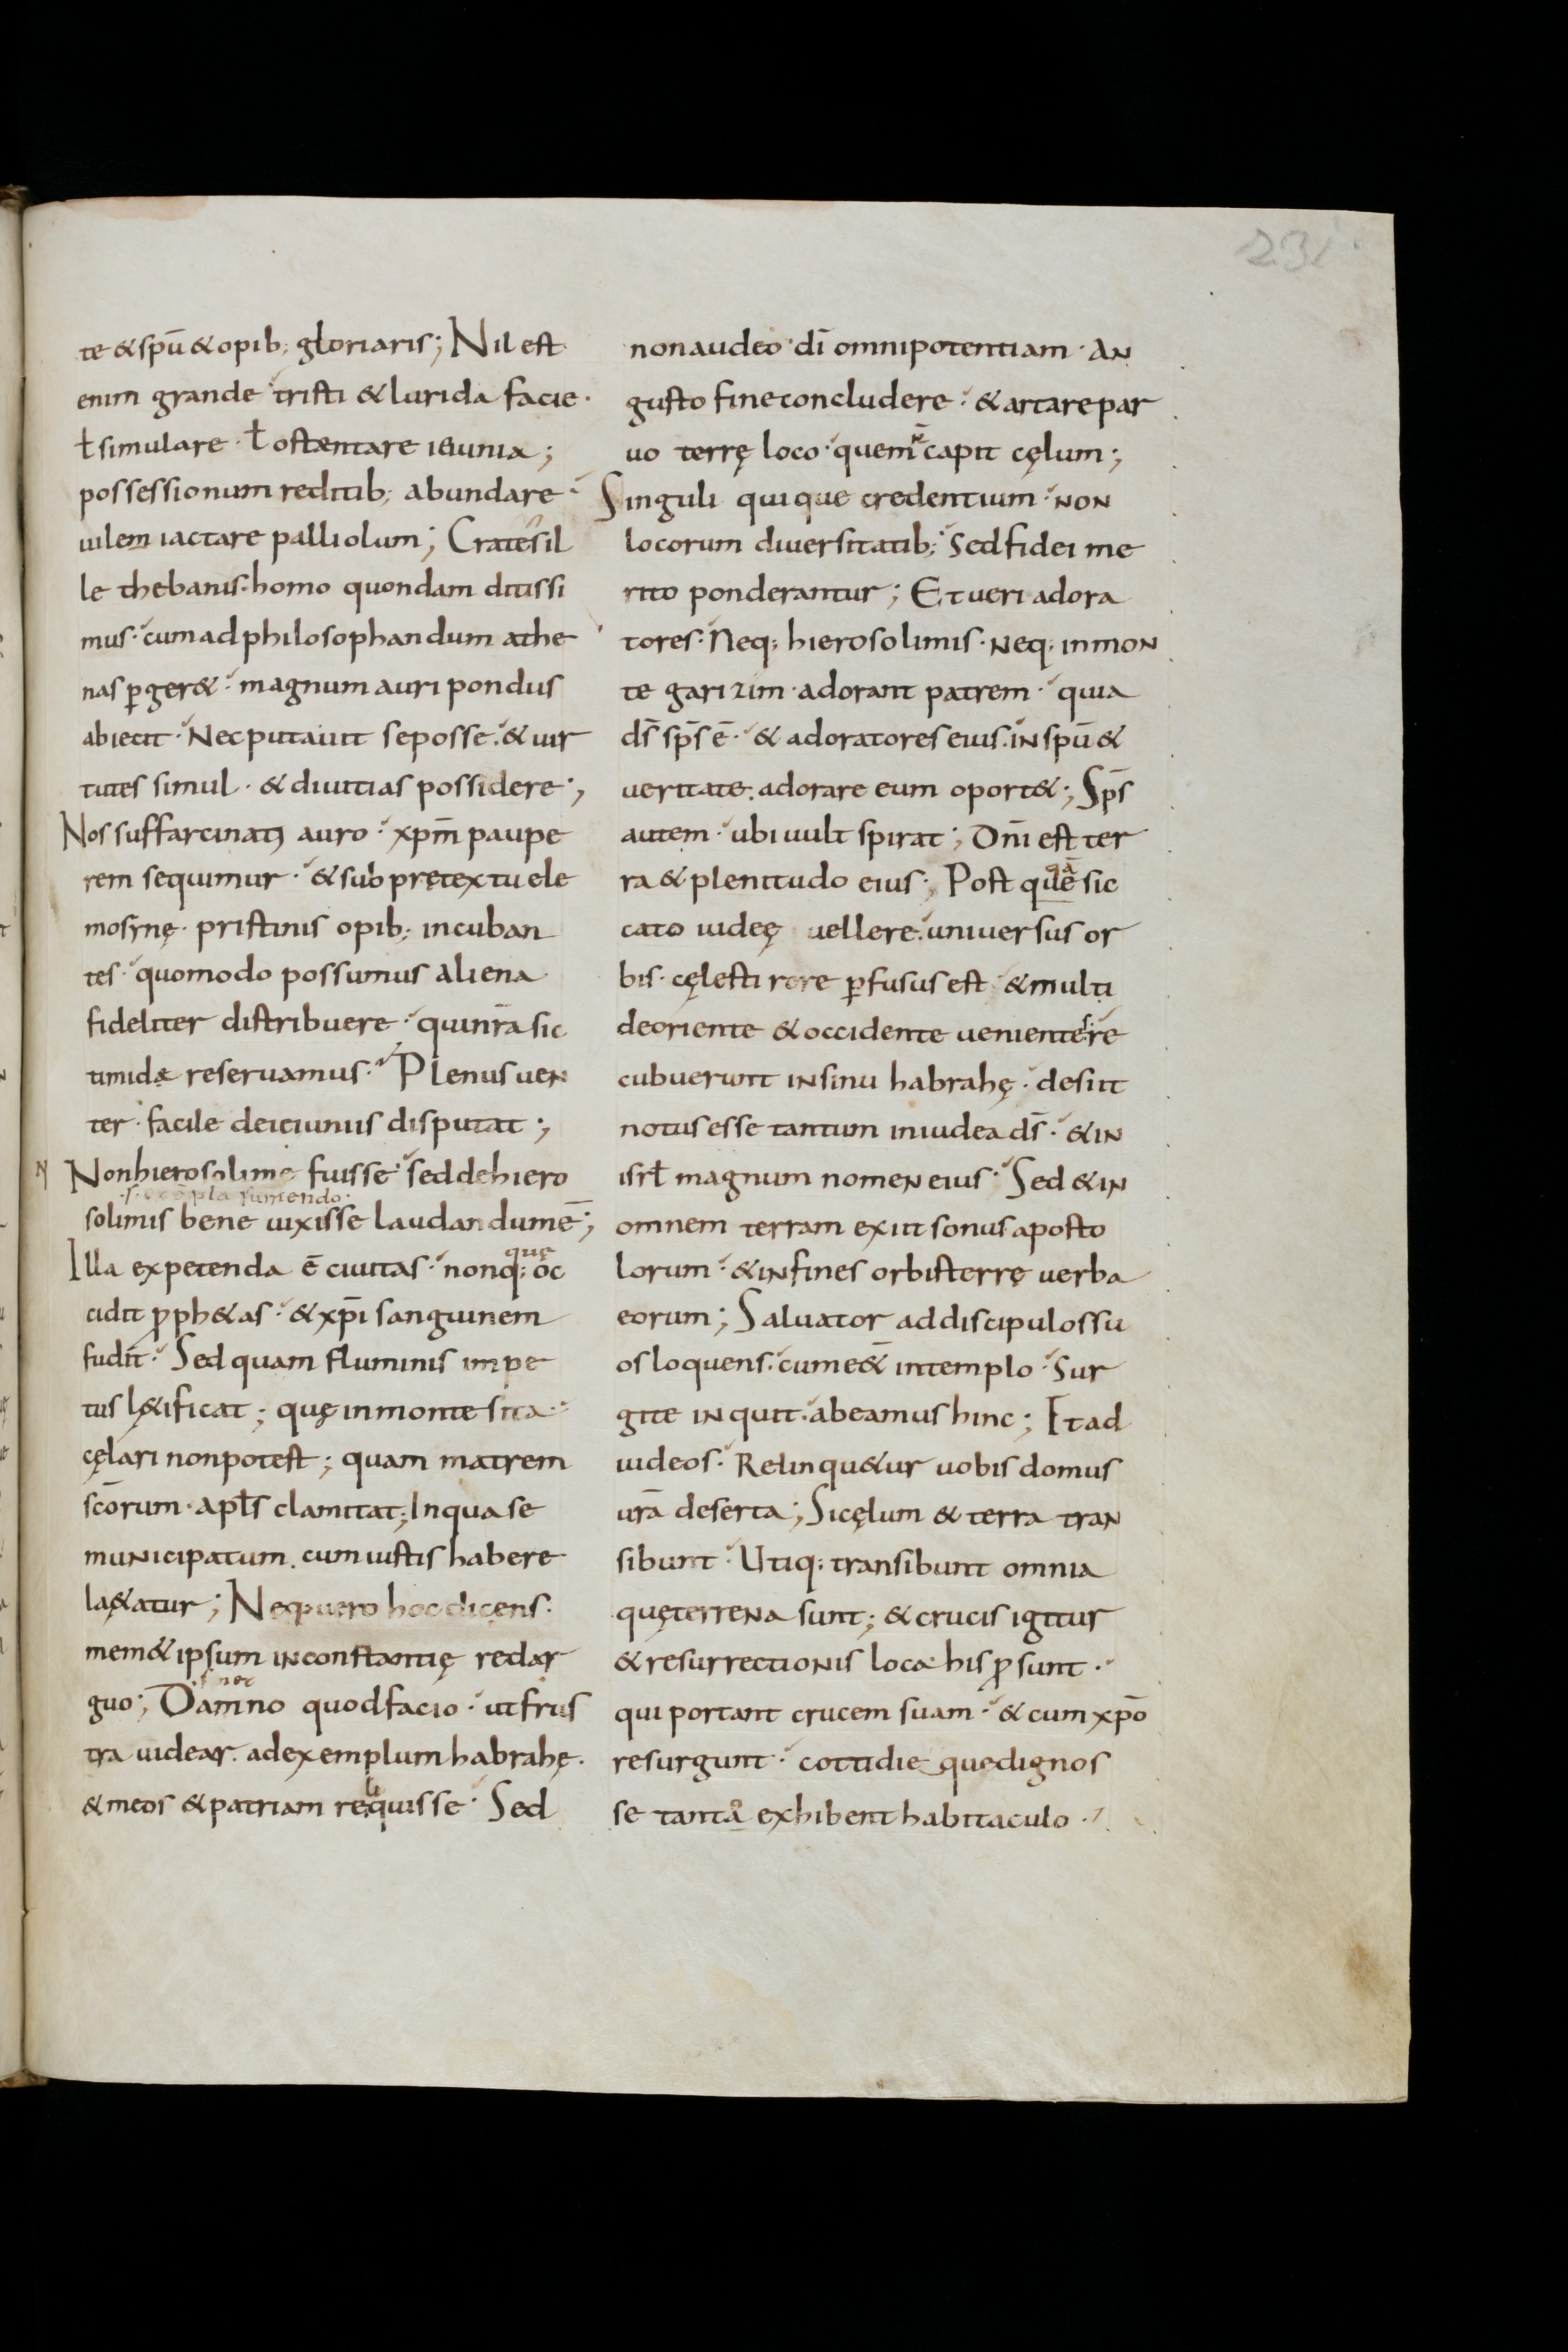 231
te & spū & opib; gloriaris; Nil est
enim grande tristi & lurida facie ·
ł simulare · ł ostæntare ieiunia;
possessionum reditib; abundare
uilem iactare palliolum; Crates il
le thebanus · homo quondam ditissi
mus · cum ad philosophandum athe
nas ꝑger& · magnum auri pondus
abiecit · Nec putauit se posse · & uir
tutes simul · & diuitias possidere;
Nos suffarcinati auro · xp̄m paupe
rem sequimur · & sub prętextu ele
mosynę · pristinis opib; incuban
tes · quomodo possumus aliena
fideliter distribuere · qui nr̄a sic
timidæ reseruamus · Plenus uen
ter · facile de ieiuniis disputat;
Non hierosolime fuisse · sed de hiero
solimis bene uixisse laudandum ē;
Illa expetenda ē ciuitas · non q; oc
que
cidit ꝓph&as · & xp̄i sanguinem
fudit · Sed quam fluminis impe
tus lę&ificat; quę in monte sita
cęlari non potest; quam matrem
sc̄orum · apłs clamitat; In qua se
municipatum · cum iustis habere
lę&atur; Neq; uero hoc dicens ·
mem& ipsum inconstantię redar
guo; Damno quod facio · ut frus
nec
tra uidear · ad exemplum habrahę ·
& meos & patriam reliquisse · Sed
non audeo · dī omnipotentiam · an
gusto fine concludere · & artare par
uo terrę loco · quem n̄ capit cęlum;
Singuli quique credentium · non
locorum diuersitatib; Sed fidei me
rito ponderantur; Et ueri adora
tores · Neq; hierosolimis · neq; in mon
te garizim · adorant patrem · quia
ds̄ sps̄ ē · & adoratores eius · in spū &
ueritate · adorare eum oport&; Sps̄
autem · ubi uult spirat; Dnī est ter
ra & plenitudo eius; Post quē sic
quā
cato iudeę uellere · uniuersus or
bis · cęlesti rore ꝑfusus est · & multi
de oriente & occidente uenientes · re
cubuerunt in sinu habrahę · desiit
notus esse tantum in iudea ds̄ · & in
isrł magnum nomen eius · Sed & in
omnem terram exiit sonus aposto
lorum · & in fines orbis terrę uerba
eorum; Saluator ad discipulos su
os loquens · cum e&̄ in templo · Sur
gite inquit · abeamus hinc; Et ad
iudeos · Relinqu&ur uobis domus
ur̄a deserta; Si cęlum & terra tran
sibunt · Utiq; transibunt omnia
quę terrena sunt; & crucis igitur
& resurrectionis loca · his ꝓsunt ·
qui portant crucem suam · & cum xp̄o
resurgunt · cottidie que dignos
se tanto exhibent habitaculo ·